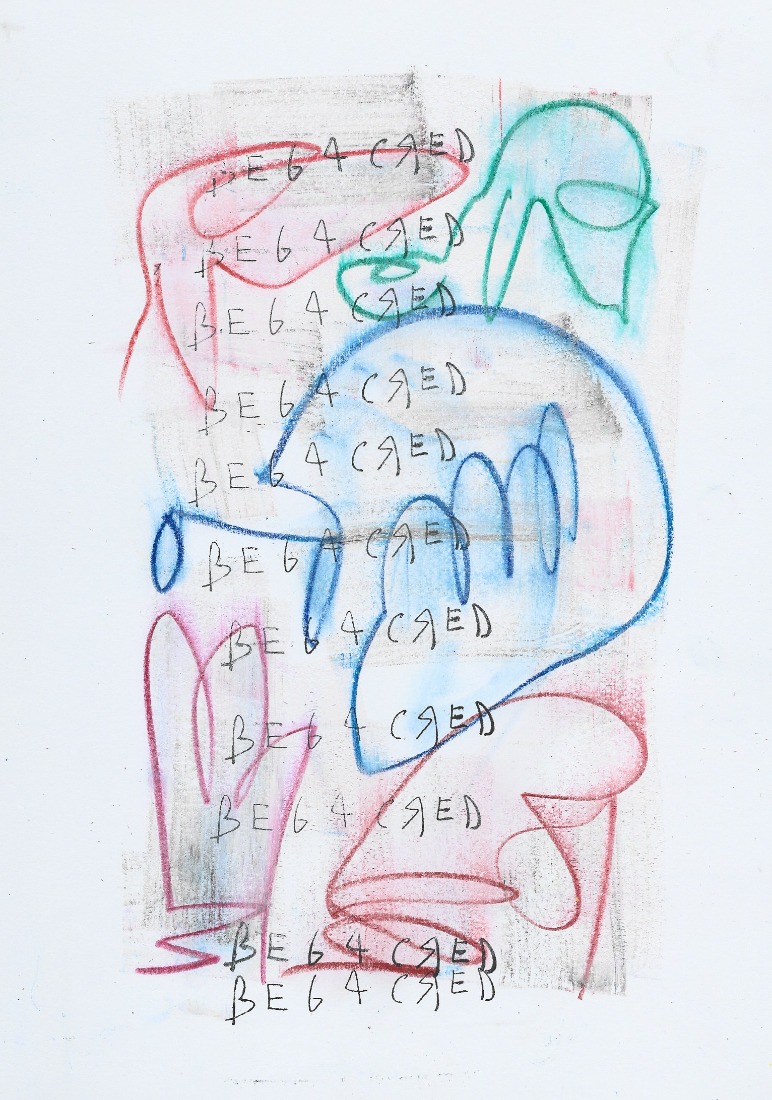 BE 6 4 CЯED
BE 6 4 CЯED
BE 6 4 CЯED
BE 6 4 CЯED
BE 6 4 CЯED
BE 6 4 CЯED
BE 6 4 CЯED
BE 6 4 CЯED
BE 6 4 CЯED
BE 6 4 CЯED
BE 6 4 CЯED